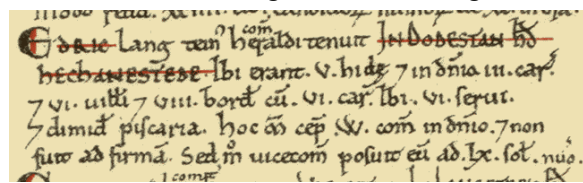 EDRIC Lang tein᷒ heraldi com̄ tenuit IN DODESTAN HD̄
HECHANESTEDE. Ibi erant. V. hidę ⁊ in dn̄io. III. car̄.
⁊ VI. uilłi ⁊ VIII. bord̄ cū. VI. car̄. Ibi. VI. serui.
⁊ dimid̄ piscaria. Hoc m̄ cep̄ .W. com̄ in dn̄io. ⁊ non
fuit ad firmā. Sed m̊ uicecom̄ posuit eū ad. lx. sol̄. nūo.